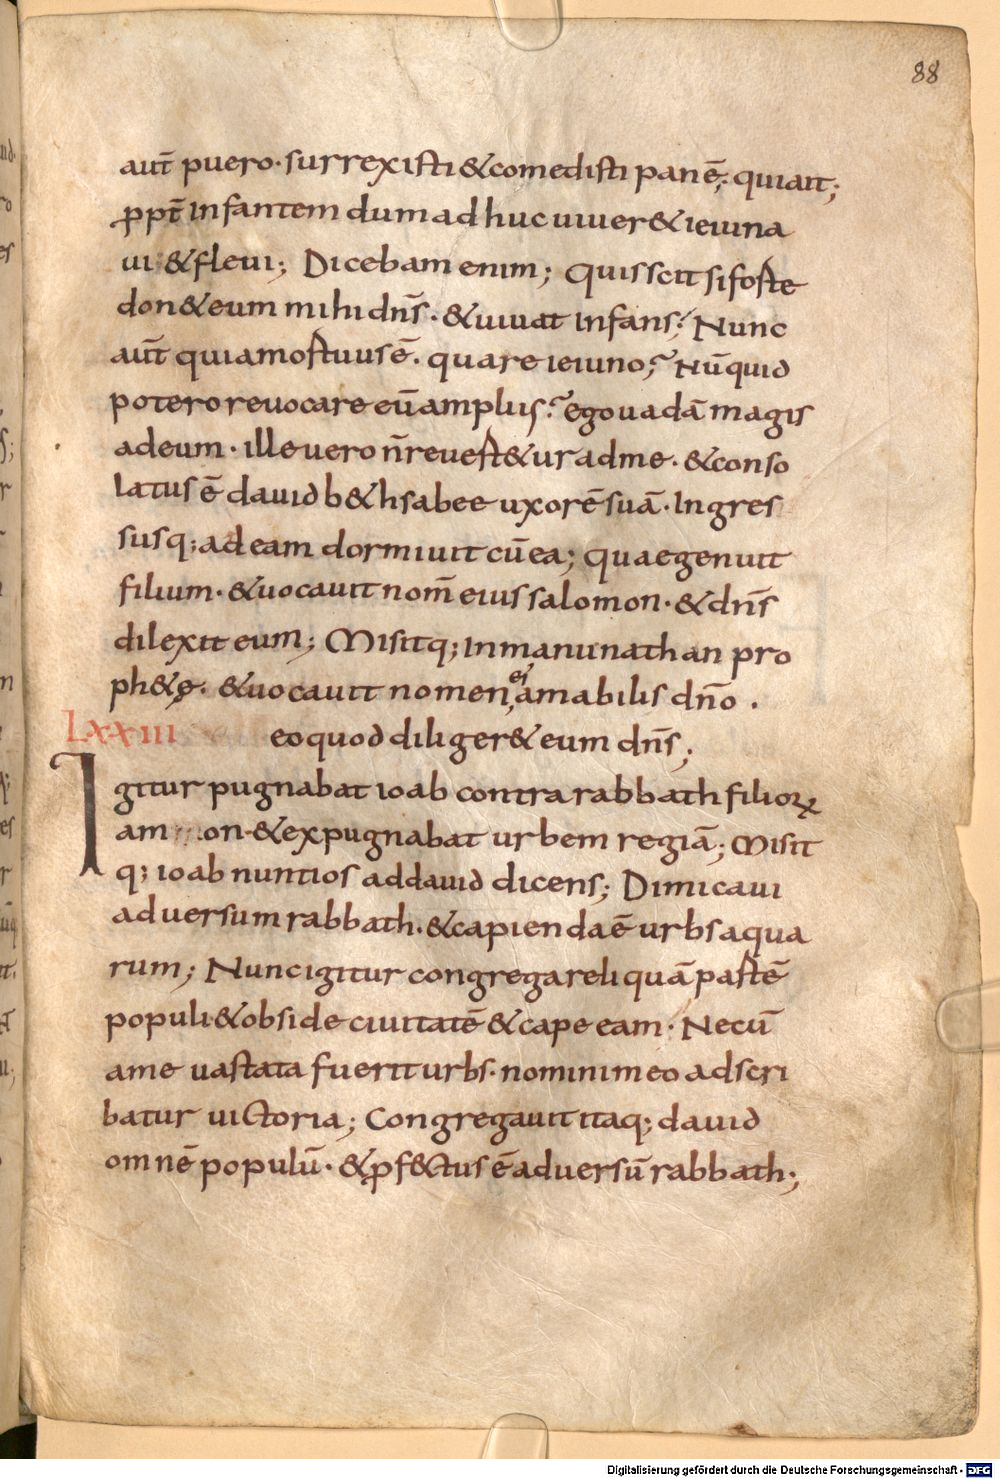 88
aut̄ puero· surrexisti &comedisti panē; quiait;
ꝓpt̄ Infantem dumadhuc uiuer& ieiuna
ui &fleui; Dicebam enim; Quisscit siforte
don&eum mihi dn̄s· &uiuat Infans; Nunc
aut̄ quiamortuusē· quare ieiuno; Nūquid
potero reuocare eū amplius; ego uadā magis
adeum· ille uero n̄reuert&ur adme· &conso
latus ē dauid b&hsabee uxorē suā· Ingres
susq; adeam dormiuit cū ea; Quae genuit
filium· &uocauit nom̄ eius salomon· & dn̄s
dilexit eum; Misitq; Inmanu nathan pro
ph&ę· &uocauit nomen ei' amabilis dn̄o·
LXXIII eoquod diliger& eum dn̄s;
Igitur pugnabat ioab contra rabbath filioꝝ
am on· &expugnabat urbem regiā; Misit
q; ioab nuntios addauid dicens; Dimicaui
aduersum rabbath· &capienda ē urbs aqua
rum; Nunc igitur congrega reliquā partē
populi &obside ciuitatē &cape eam· Necū
ame uastata fuerit urbs· nomini meo adscri
batur uictoria; Congregauit itaq; dauid
omnē populū· &ꝓfectus ē aduersū rabbath;
Digitalisierung gefördert durch die Deutsche Forschungsgemeinschaft - DFG